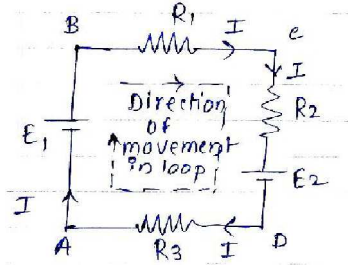 R1
B
I
C
I
R2
Direction
of
movement
in loop
E1
E2
I
A
R3
I
D